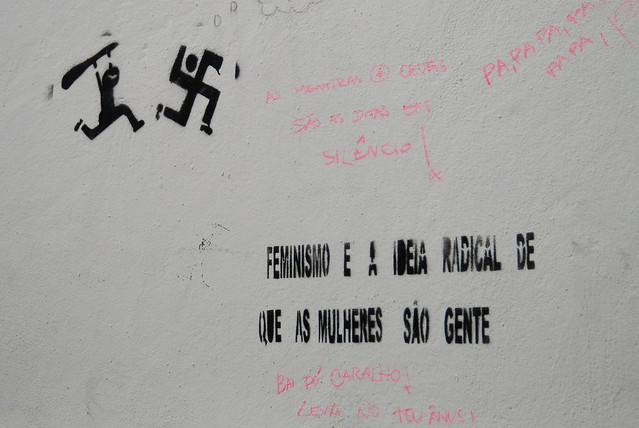 AS MENTIRAS
SÃO AS DITAS EM
SILÊNCIO!
PA, PA PA, PA
PAPA, P
FEMINISMO E A IDEIA RADICAL DE
QUE AS MULHERES SÃO GENTE
BAI PÓ CARALHO!
LEVA NO TEU ÂNUS!